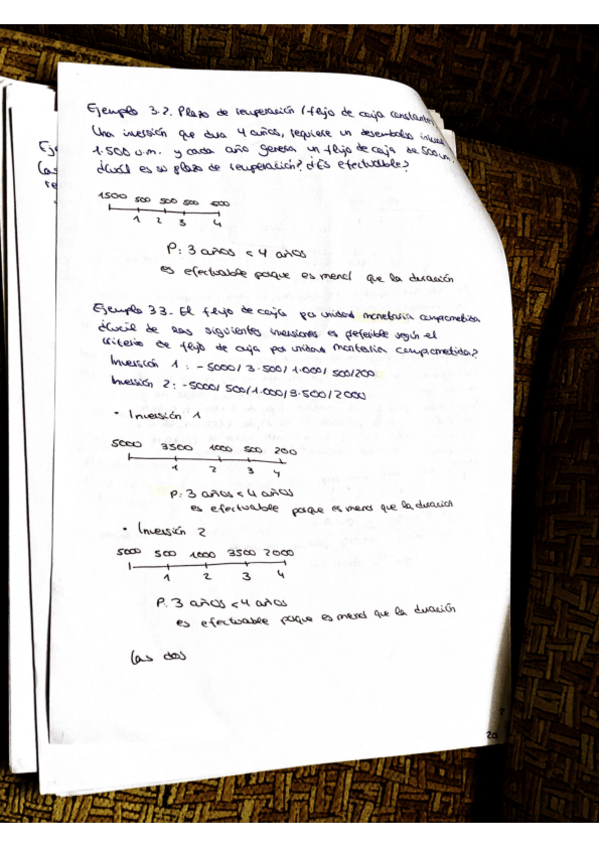 Eje
Las
re
Ejemplo 3.2. Plazo de recuperación (flujo de caja constante)
Una inversión que dura 4 años, requiere un desembolso inicial
1.500 u.m. y cada año genera un flujo de caja de 500 um.
¿Cuál es su plazo de recuperación? ¿Es efectuable?
1500 500 500 500 500
1 2 3 4
P: 3 años < 4 años
es efectuable porque es menor que la duración
Ejemplo 3.3. El flujo de caja por unidad monetaria comprometida
¿Cuál de las siguientes inversiones es preferible según el
criterio de flujo de caja por unidad monetaria comprometida?
Inversión 1: -5000/ 3.500/ 1.000/ 500/200
Inversión 2: -5000/ 500/1.000/3.500/2000
• Inversión 1
5000 3500 1000 500 200
1 2 3 4
P: 3 años < 4 años
es efectuable porque es menor que la duración
• Inversión 2
5000 500 1000 3500 2000
1 2 3 4
P: 3 años < 4 años
es efectuable porque es menor que la duración
Las dos
20